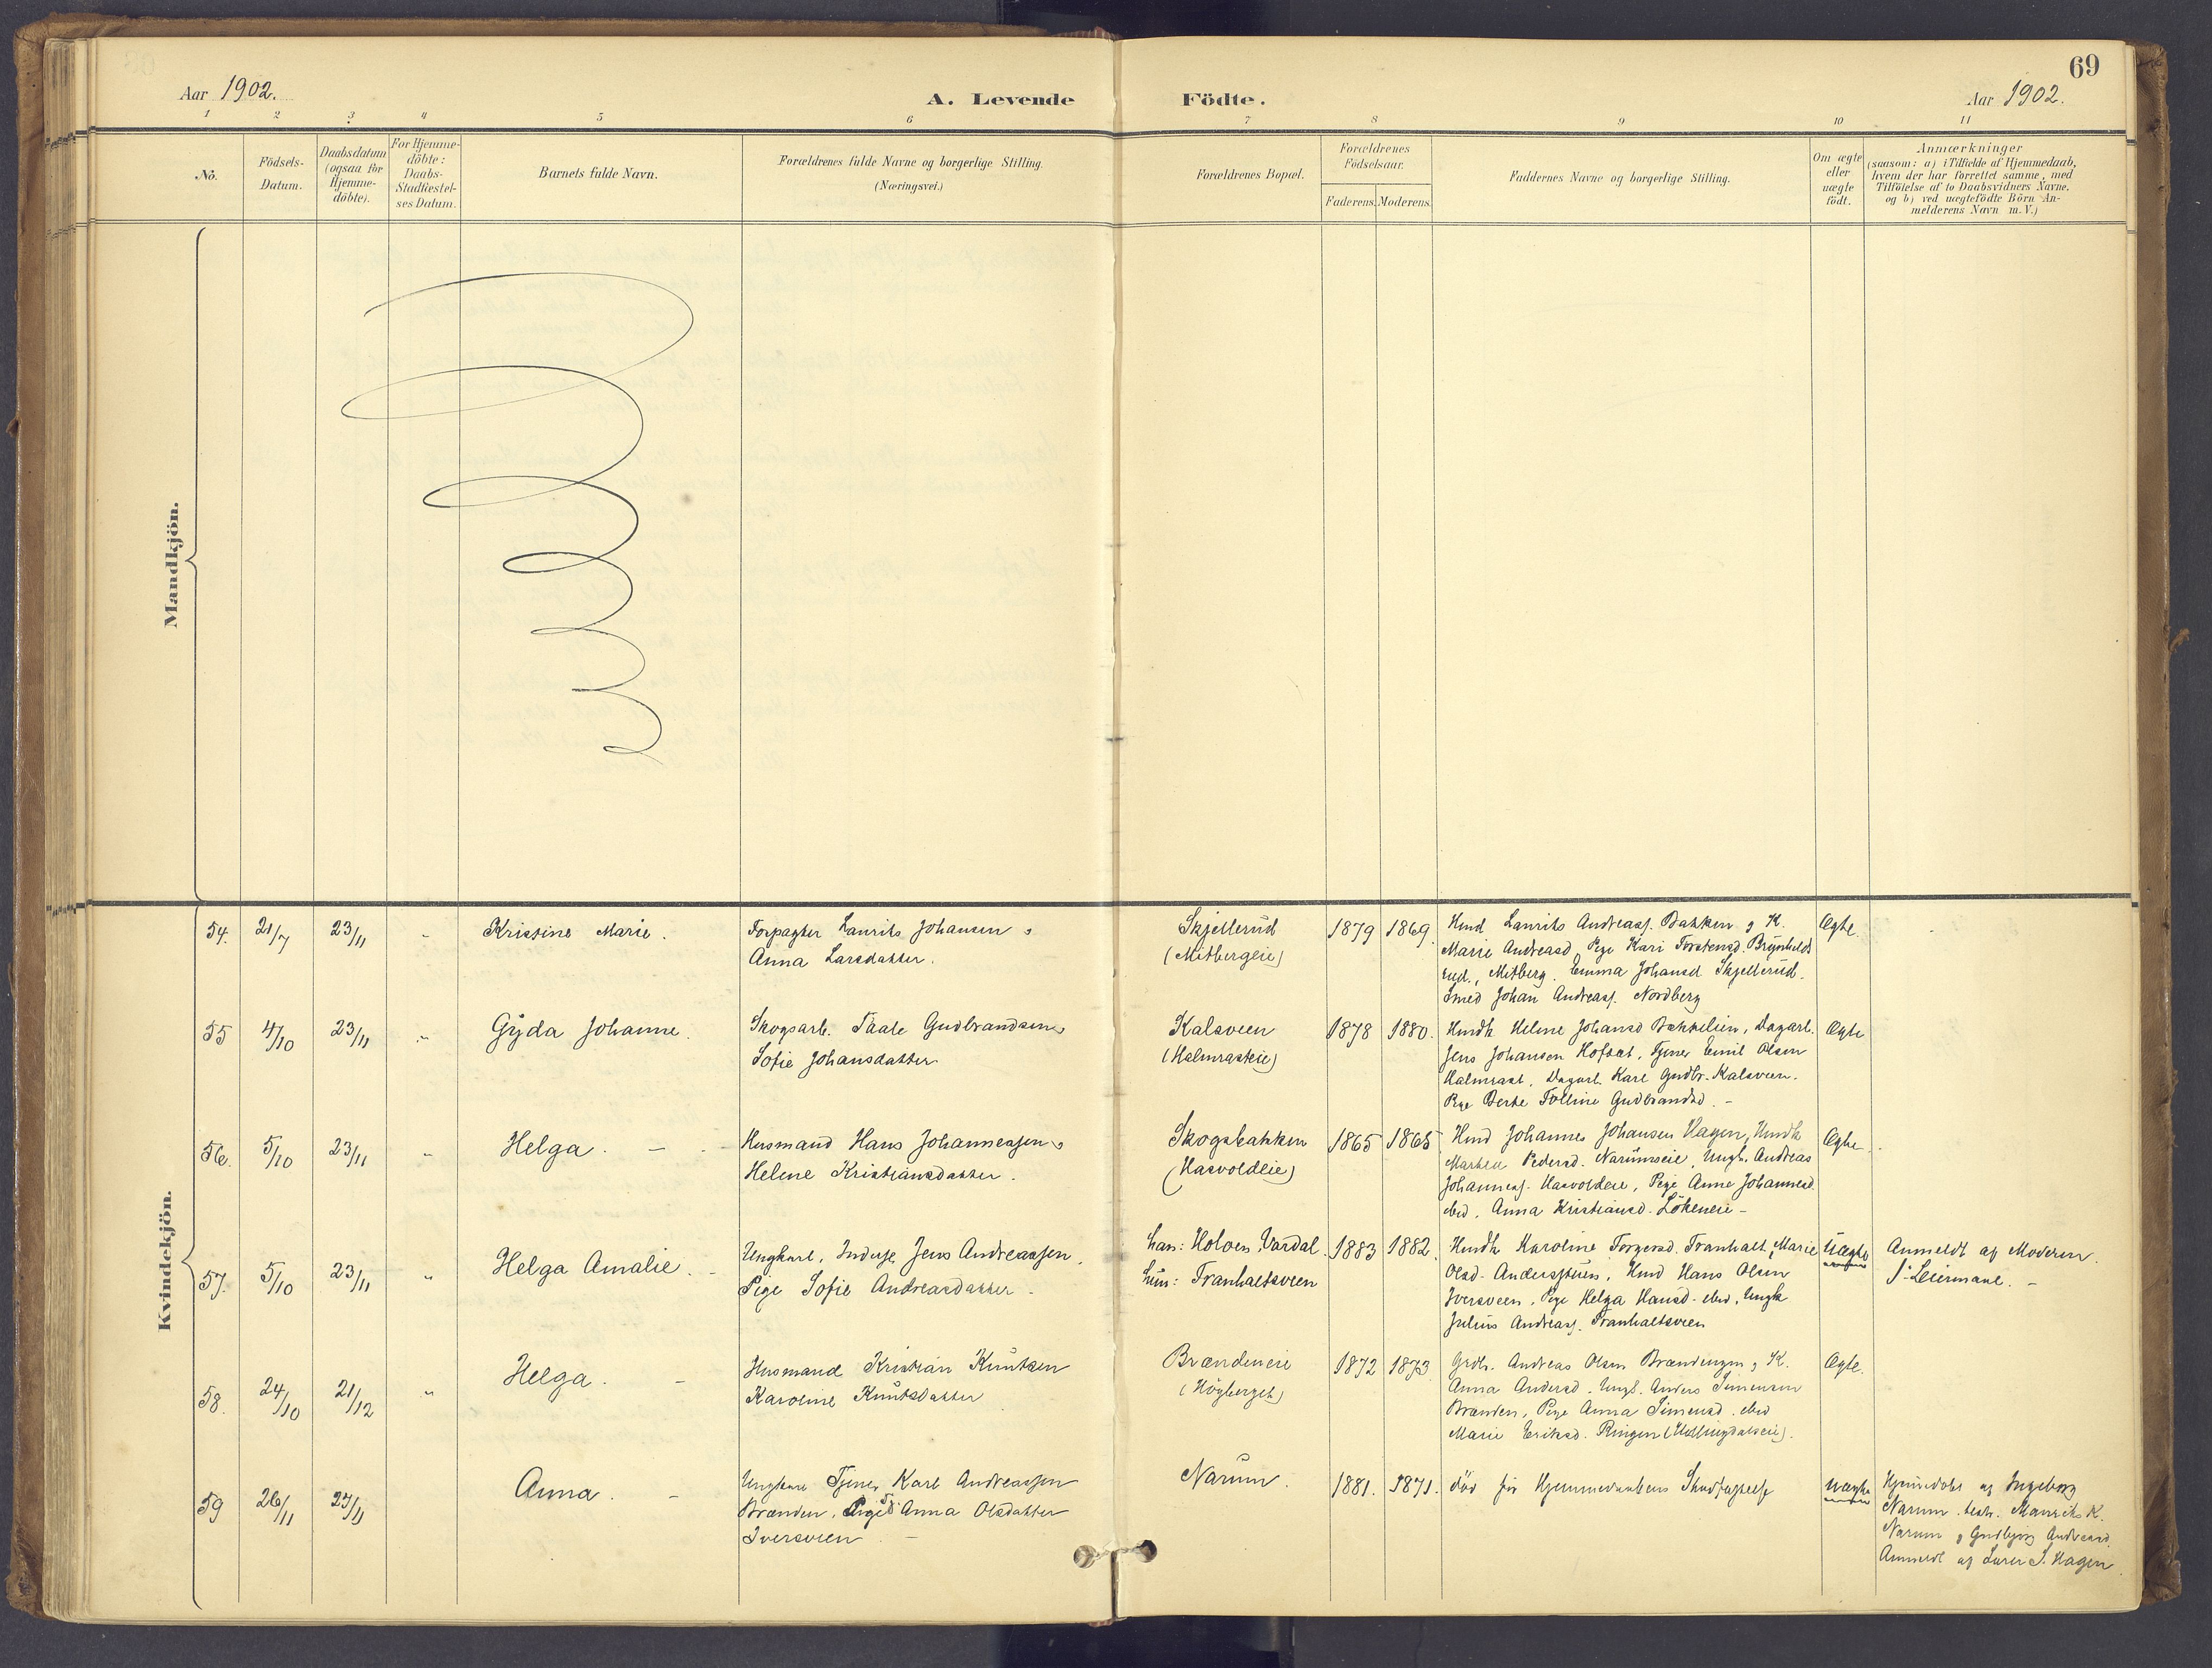 69
Aar 1902.
A. Levende Födte.
Aar 1902.
1 2 3 4 5 6 7 8 9 10 11
No.
Födsels-
Datum.
Daabsdatum
(ogsaa for
Hjemme-
döbte).
For Hjemme-
döbte:
Daabs-
Stadfæstel-
ses Datum.
Barnets fulde Navn.
Forældrenes fulde Navne og borgerlige Stilling.
(Næringsvei.)
Forældrenes Bopæl.
Forældrenes
Födselsaar.
Faderens. Moderens.
Faddernes Navne og borgerlige Stilling.
Om ægte
eller
uægte
födt.
Anmærkninger
(saasom: a) i Tilfælde af Hjemmedaab,
hvem der har forrettet samme, med
Tilföielse af to Daabsvidners Navne.
og b) ved uægtefödte Börn An-
melderens Navn m.V.)
Mandkjön.
Kvindekjön.
54. 21/7 23/11 " Kristine Marie.
Forpagter Laurits Johansen &
Anna Larsdatter.
Skjellerud
(Mitbergeie)
1879 1869.
Kmd Laurits Andreass. Bakken & K.
Marie Andreasd Pige Kari Torstensd. Brynhilds
rud., Mitberg. Emma Johansd Skjellerud.
Smed Johan Andreass. Nordberg
Ægte.
55 4/10 23/11 " Gyda Johanne.
Skogsarb. Paale Gudbrandsen &
Sofie Johansdatter
Kalsveen
(Halmrasteie)
1878 1880.
Kmdk Helene Johansd Bakkelien, Dagarb.
Jens Johansen Hofset, Tjener Emil Olsen
Halmrast, Dagarb. Karl Gudbr. Kalsveen.
Pige Berte Golline Gudbrandsd. -
Ægte
56. 5/10 23/11 " Helga. -
Husmand Hans Johannessen &
Helene Kristiansdatter.
Skogsbakken
(Hasvoldeie)
1865 1865
Kmd Johannes Johansen Hagen, Kmdk
Marthea Pedersd. Narumseie, Ungk. Andreas
Johanness. Hasvoldeie, Pige Anne Johannesd.
ibid, Anna Kristiansd. Lökeneie -
Ægte.
57. 5/10 23/11 " Helga Amalie. -
Ungkarl, Inderst Jens Andreassen,
Pige Sofie Andreasdatter -
han: Holven, Vardal.
hun: Tranhaltsveen
1883 1882.
Kmdk Karoline Torgersd. Tranhalt, Marie
Olsd. Andersstuen, Kmd Hans Olsen
Iversveen, Pige Helga Hansd. ibid, Ungk
Julius Andreass. Tranhaltsveen
Uægte
Anmeldt af Moderen.
1' Leiermaal. -
58. 24/10 21/12 " Helga. -
Husmand Kristian Knutsen
Karoline Knutsdatter
Brændeneie
(Högberget)
1872 1873
Grdbr. Andreas Olsen Brændengen & K.
Anna Andersd. Ungk. Anders Simensen
Brænden, Pige Anna Simensd. ibid
Marie Eriksd. Ringen
Ægte.
59 26/11 27/11 Anna. -
Ungkarl Tjener Karl Andreassen
Brænden, Pige Anna Olsdatter
Iversveen. -
Narum.
1881. 1871.
död før Hjemmedaabens Stadfæstelse
Uægte
Hjemmedöbt af Ingeborg
Narum. test. Maurits K.
Narum & Gudbjörg Andreasd.
Anmeldt af Lærer S. Hagen.